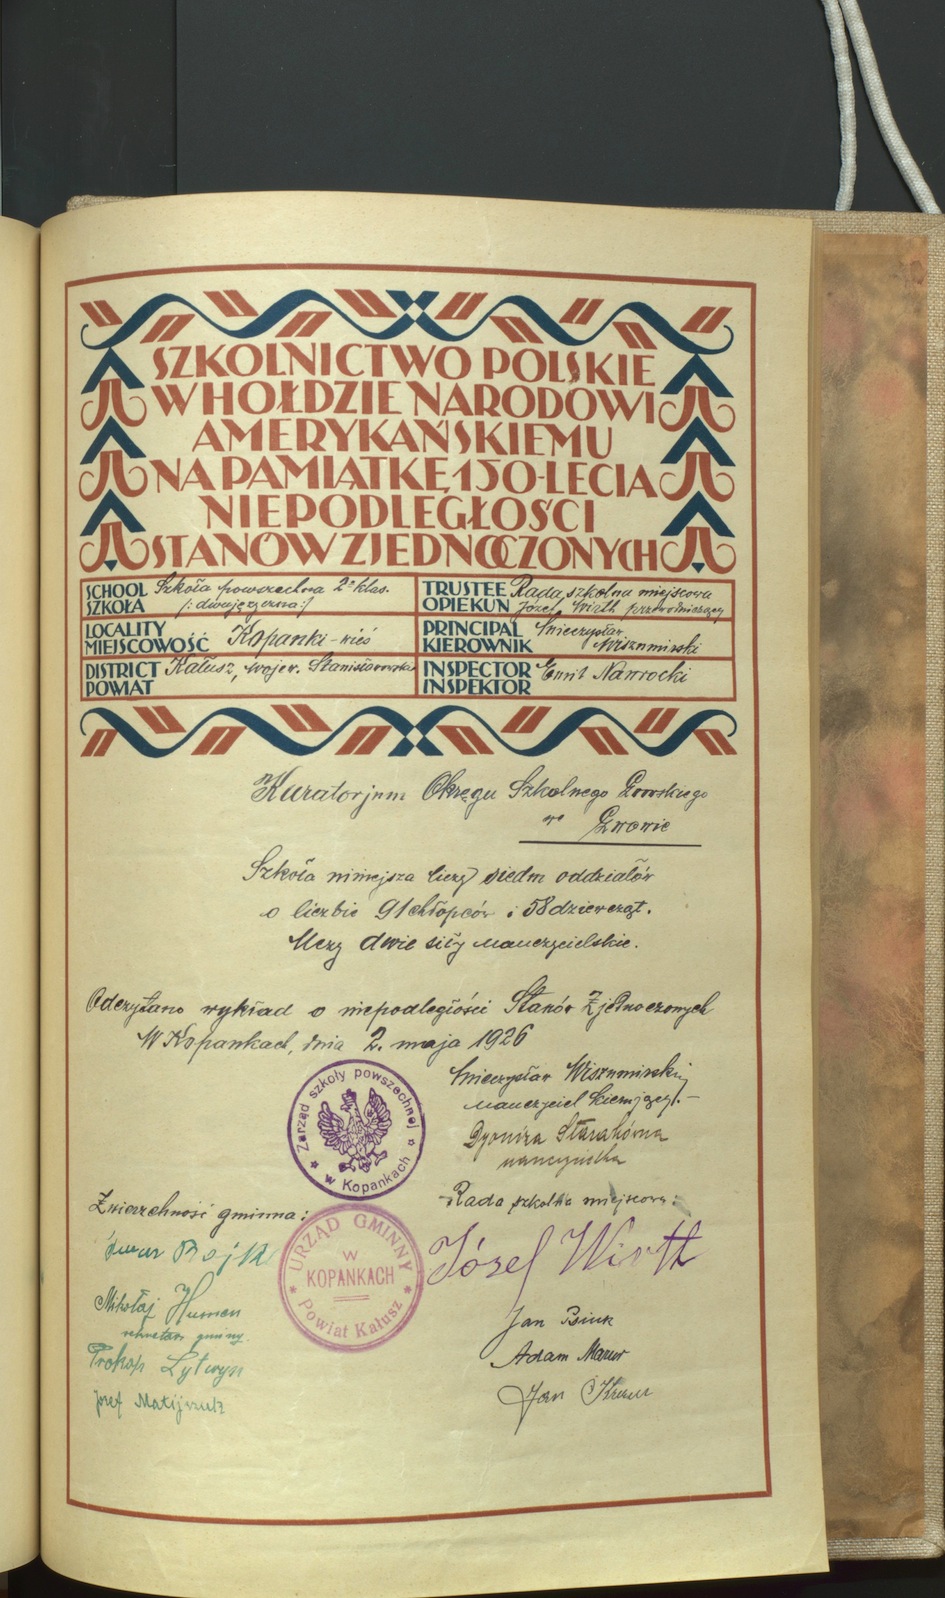 SZKOLNICTWO POLSKIE
W HOŁDZIE NARODOWI
AMERYKAŃSKIEMU
NA PAMIĄTKĘ 150-LECIA
NIEPODLEGŁOŚCI
STANÓW ZJEDNOCZONYCH
SCHOOL SZKOŁA Szkoła powszechna 2-klas.
/:dwujęzyczna:/
TRUSTEE OPIEKUN Rada szkolna miejscowa
Józef Wirth przewodniczący
LOCALITY MIEJSCOWOŚĆ Kopanki-wieś
PRINCIPAL KIEROWNIK Mieczysław
Wiszumirski
DISTRICT POWIAT Kałusz, wojew. Stanisławowskie
INSPECTOR INSPEKTOR Emil Nawrocki
Kuratorjum Okręgu Szkolnego Lwowskiego
we Lwowie
Szkoła niniejsza liczy siedm oddziałów
o liczbie 91 chłopców i 58 dziewcząt.
Uczy dwie siły nauczycielskie.
Odczytano wykład o niepodległości Stanów Zjednoczonych
W Kopankach, dnia 2. maja 1926
Zarząd szkoły powszechnej
w Kopankach
Mieczysław Wiszumirski
nauczyciel kierujący.
Dyoniza
nauczycielka
Zwierzchność gminna:
Rada szkolna miejscowa:
URZĄD GMINNY
W
KOPANKACH
Powiat Kałusz
Bojko
Józef Wirth
Mikołaj Humen
sekretarz gminy.
Jan
Prokop Lytwyn
Adam Mazur
Józef Matijczuk
Jan